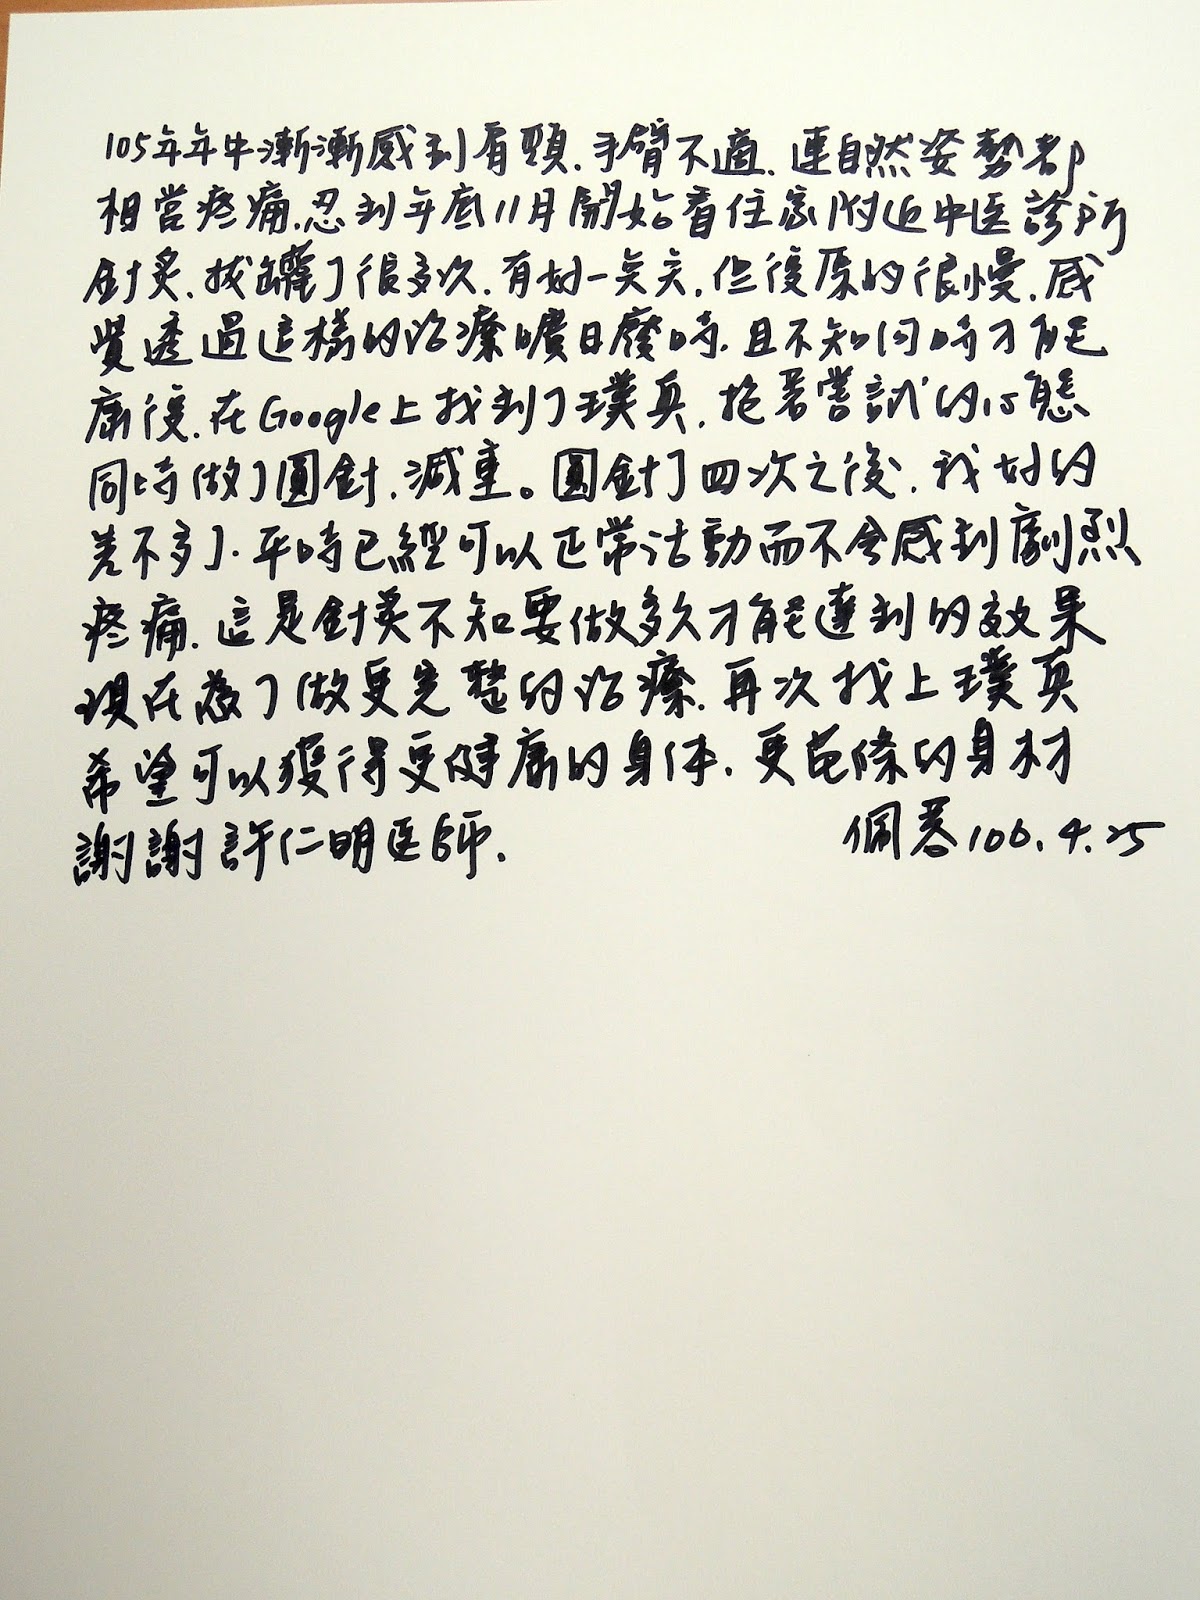 105年年中漸漸感到肩頸.手臂不適.連自然姿勢都
相當疼痛.忍到年底11月開始看住家附近中医診所
針炙.拔罐了很多次.有好一點点.但復原的很慢.感
覺透過這樣的治療曠日廢時.且不知何時才能
康復.在Google上找到了璞真.抱著嘗試的心態
同時做了圓針.減重。圓針打四次之後.我好的
差不多了.平時已經可以正常活動而不會感到劇烈
疼痛.這是針炙不知要做多久才能達到的效果
現在為了做更完整的治療.再次找上璞真
希望可以獲得更健康的身体.更苗條的身材
謝謝許仁明医師.
佩蓉106.4.25